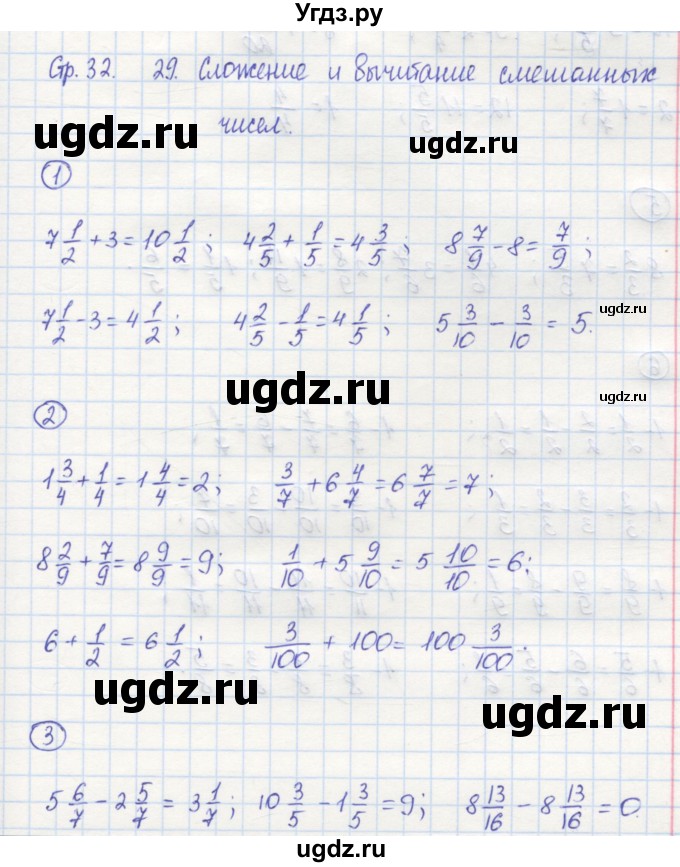 Угдз.ру
Стр. 32. 29. Сложение и вычитание смешанных
чисел.
ugdz.ru ugdz.ru
1
7 1/2 + 3 = 10 1/2; 4 2/5 + 1/5 = 4 3/5; 8 7/9 - 8 = 7/9;
ugdz.ru
7 1/2 - 3 = 4 1/2; 4 2/5 - 1/5 = 4 1/5; 5 3/10 - 3/10 = 5.
ugdz.ru
2
1 3/4 + 1/4 = 1 4/4 = 2; 3/7 + 6 4/7 = 6 7/7 = 7;
8 2/9 + 7/9 = 8 9/9 = 9; 1/10 + 5 9/10 = 5 10/10 = 6;
6 + 1/2 = 6 1/2; 3/100 + 100 = 100 3/100.
ugdz.ru ugdz.ru
3
5 6/7 - 2 5/7 = 3 1/7; 10 3/5 - 1 3/5 = 9; 8 13/16 - 8 13/16 = 0.